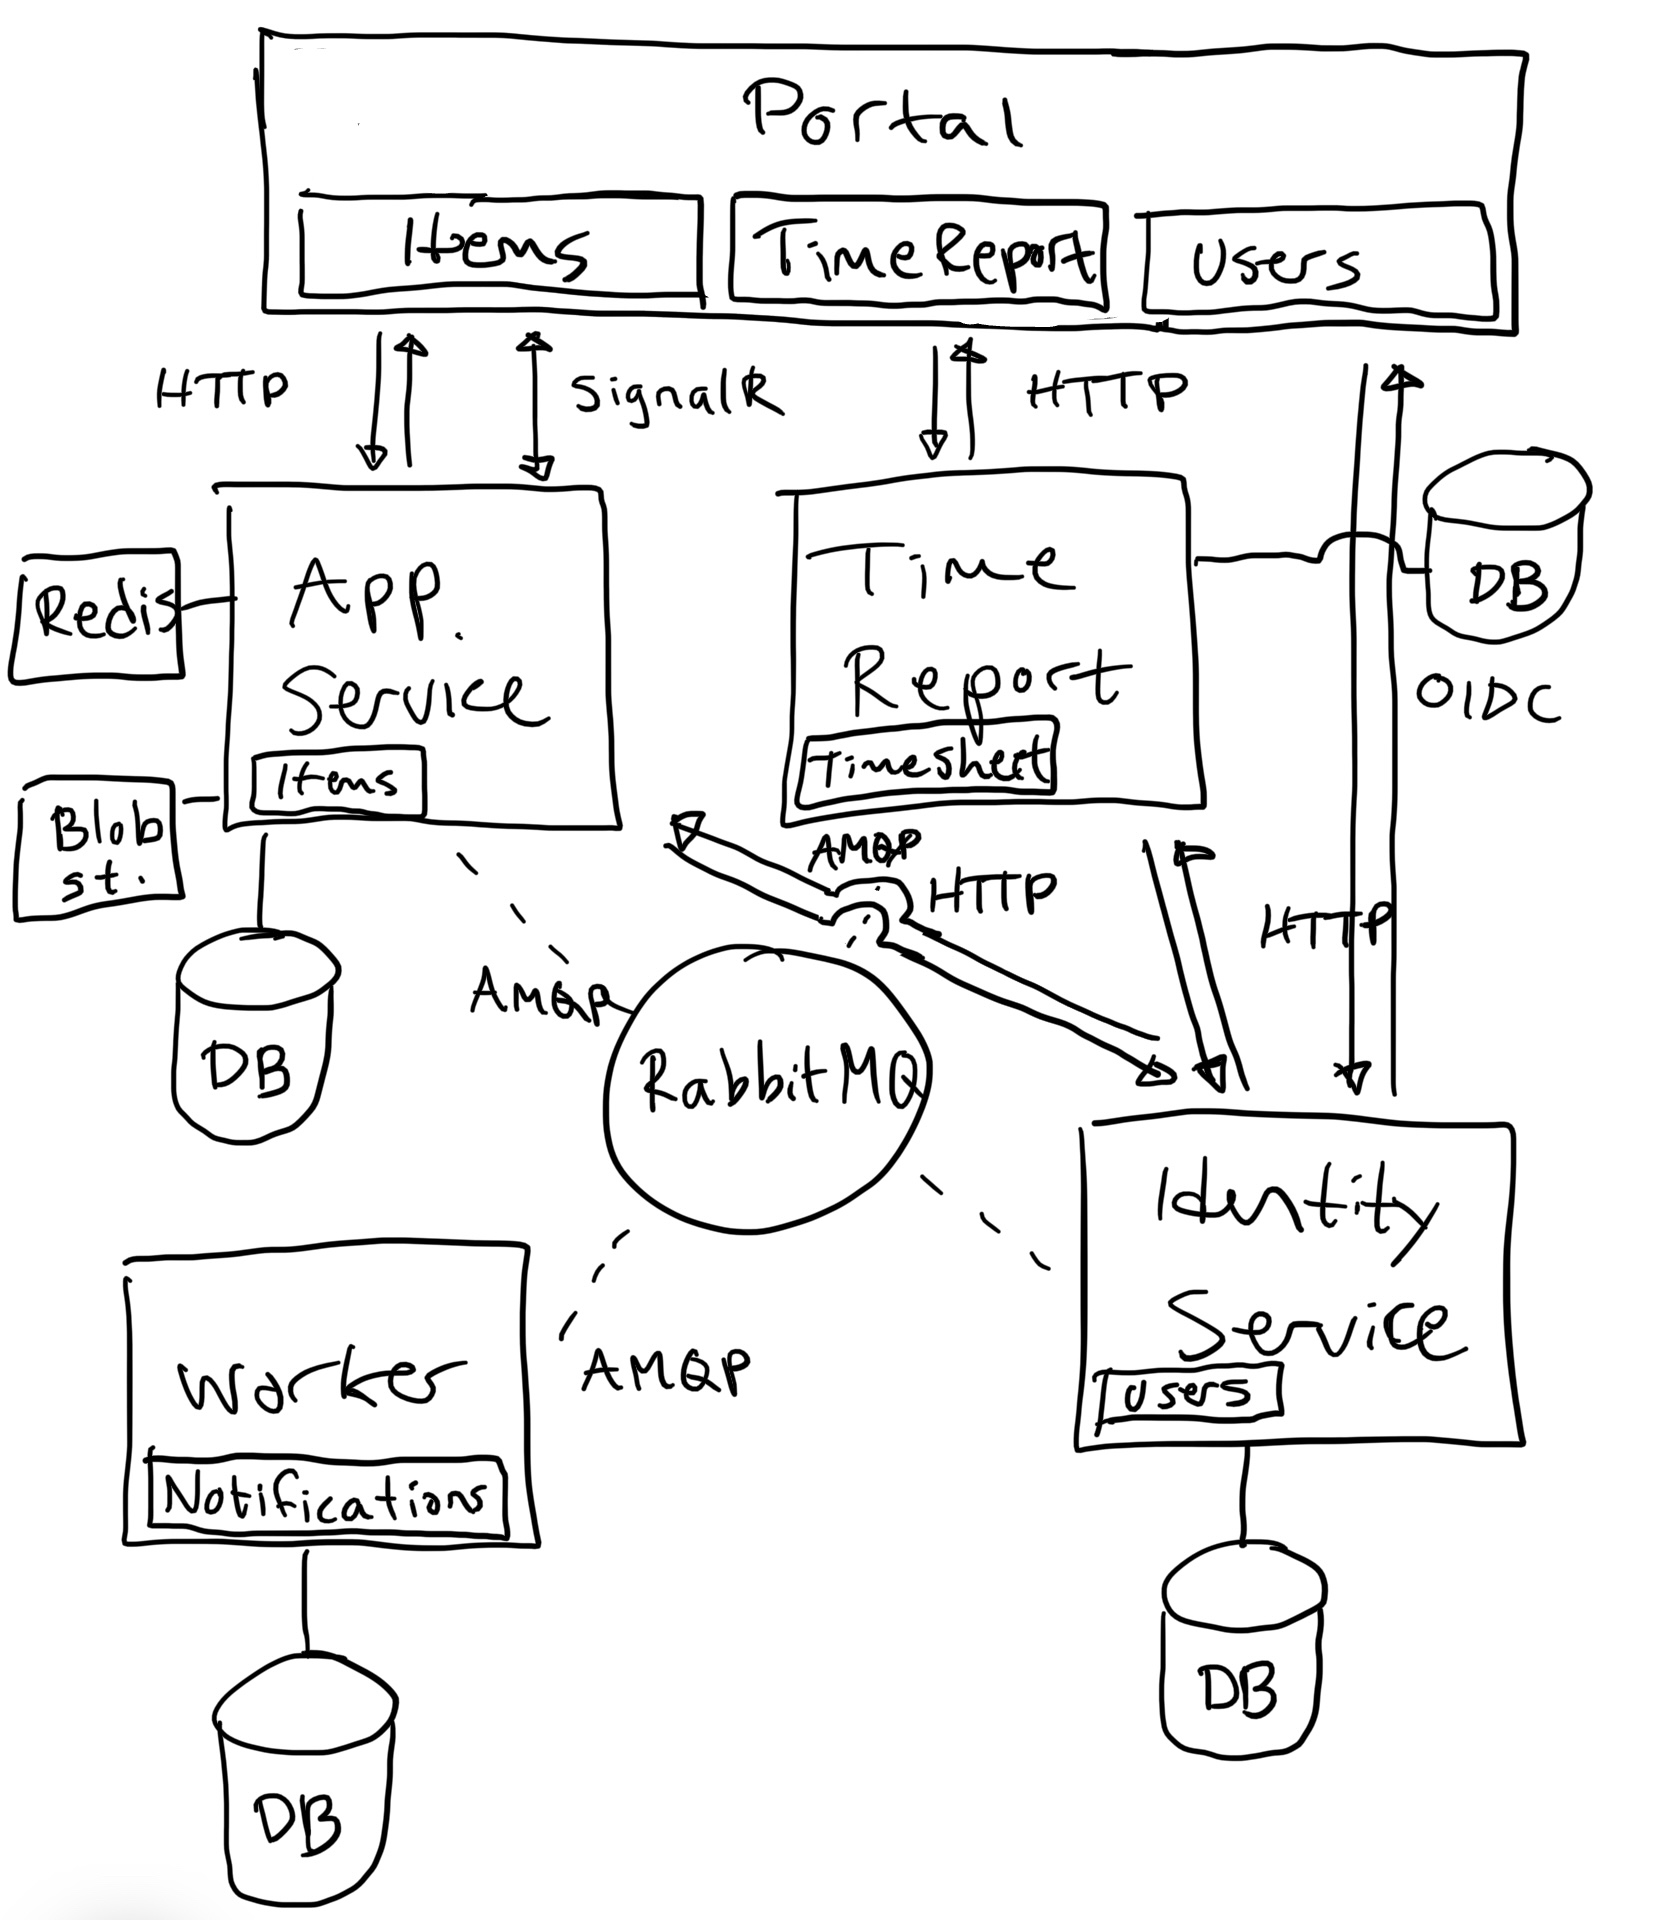 Portal
Items
TimeReport
Users
HTTP
SignalR
HTTP
App.
Service
Items
Redis
Blob
st.
DB
Time
Report
Timesheet
DB
OIDC
AMQP
HTTP
HTTP
AMQP
RabbitMQ
Identity
Service
Users
DB
Worker
Notifications
AMQP
DB